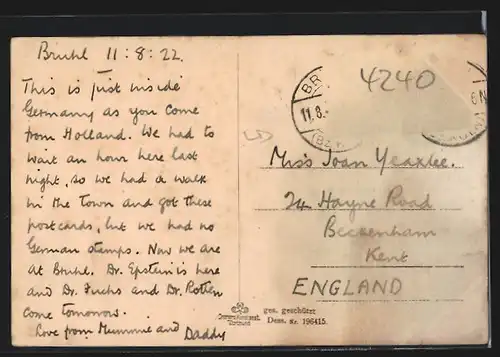 Bruhl 11:8:22.
This is just inside
Germany as you come
from Holland. We had to
wait an hour here last
night, so we had a walk
in the Town and got these
postcards, but we had no
German stamps. Now we are
at Bruhl. Dr. Epstein is here
and Dr. Fuchs and Dr. Rotten
come tomorrow.
Love from Mummie and Daddy
4240
BR
11.8.
Miss Joan Yeaxlee.
24 Hayne Road
Beckenham
Kent
ENGLAND
ges. geschützt
Dess. Nr. 196415.